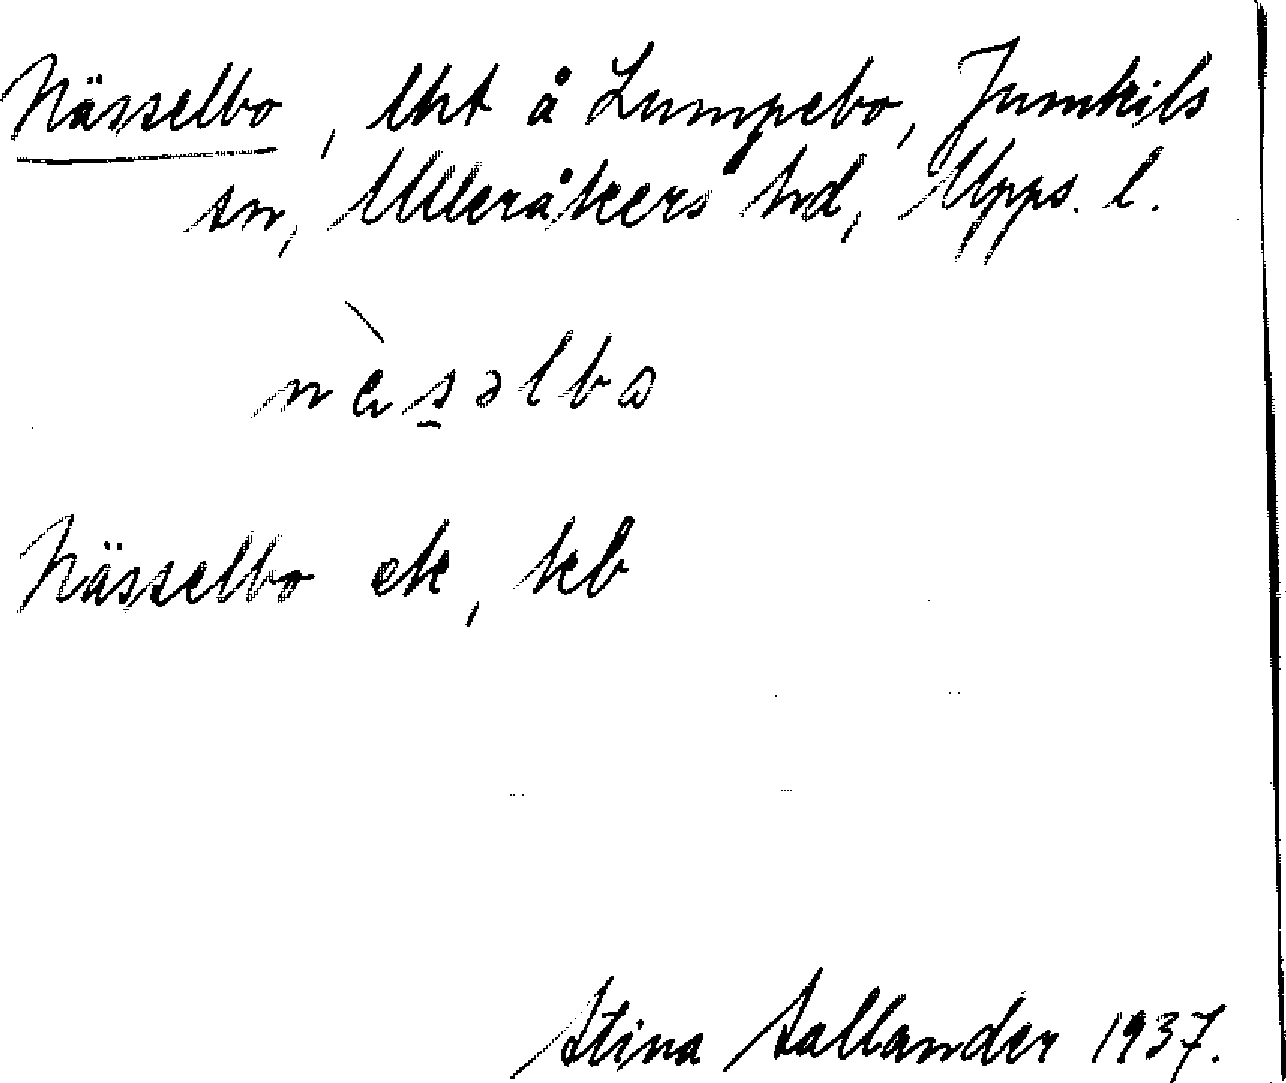 Nässelbo, lht å Lumpebo, Jumkils
sn, Ulleråkers hd, Upps. l.
nèsəlbɷ
Nässelbo ek, kb
Stina Sallander 1937.